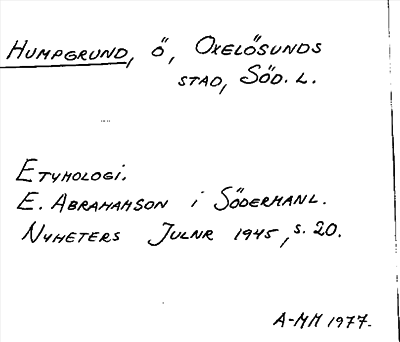 HUMPGRUND, Ö, OXELÖSUNDS
STAD, SÖD. L.
ETYMOLOGI.
E. ABRAHAMSON i SÖDERMANL.
NYHETERS JULNR 1945, s. 20.
A-MM 1977.